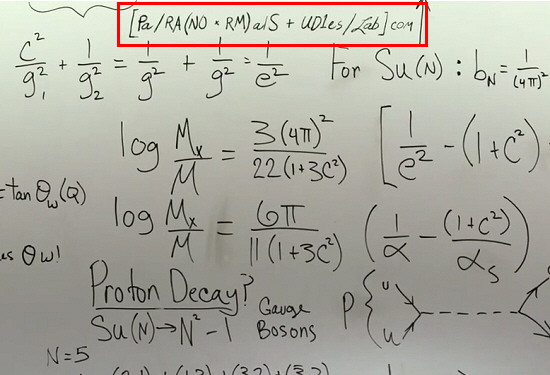 [Pa/RA(NO × RM)alS + UD1es/Lab]com
C²/g₁² + 1/g₂² = 1/g² + 1/g² = 1/e²  For Su(N): b_N = 1/(4π)²
log Mₓ/M = 3(4π)²/22(1+3C²) [1/e² - (1+C²)
= tan θw(Q)
log Mₓ/M = 6π/11(1+3C²) (1/α - (1+C²)/αₛ)
us θw!
Proton Decay?
Su(N) → N² - 1 Gauge Bosons
P { u u
N=5